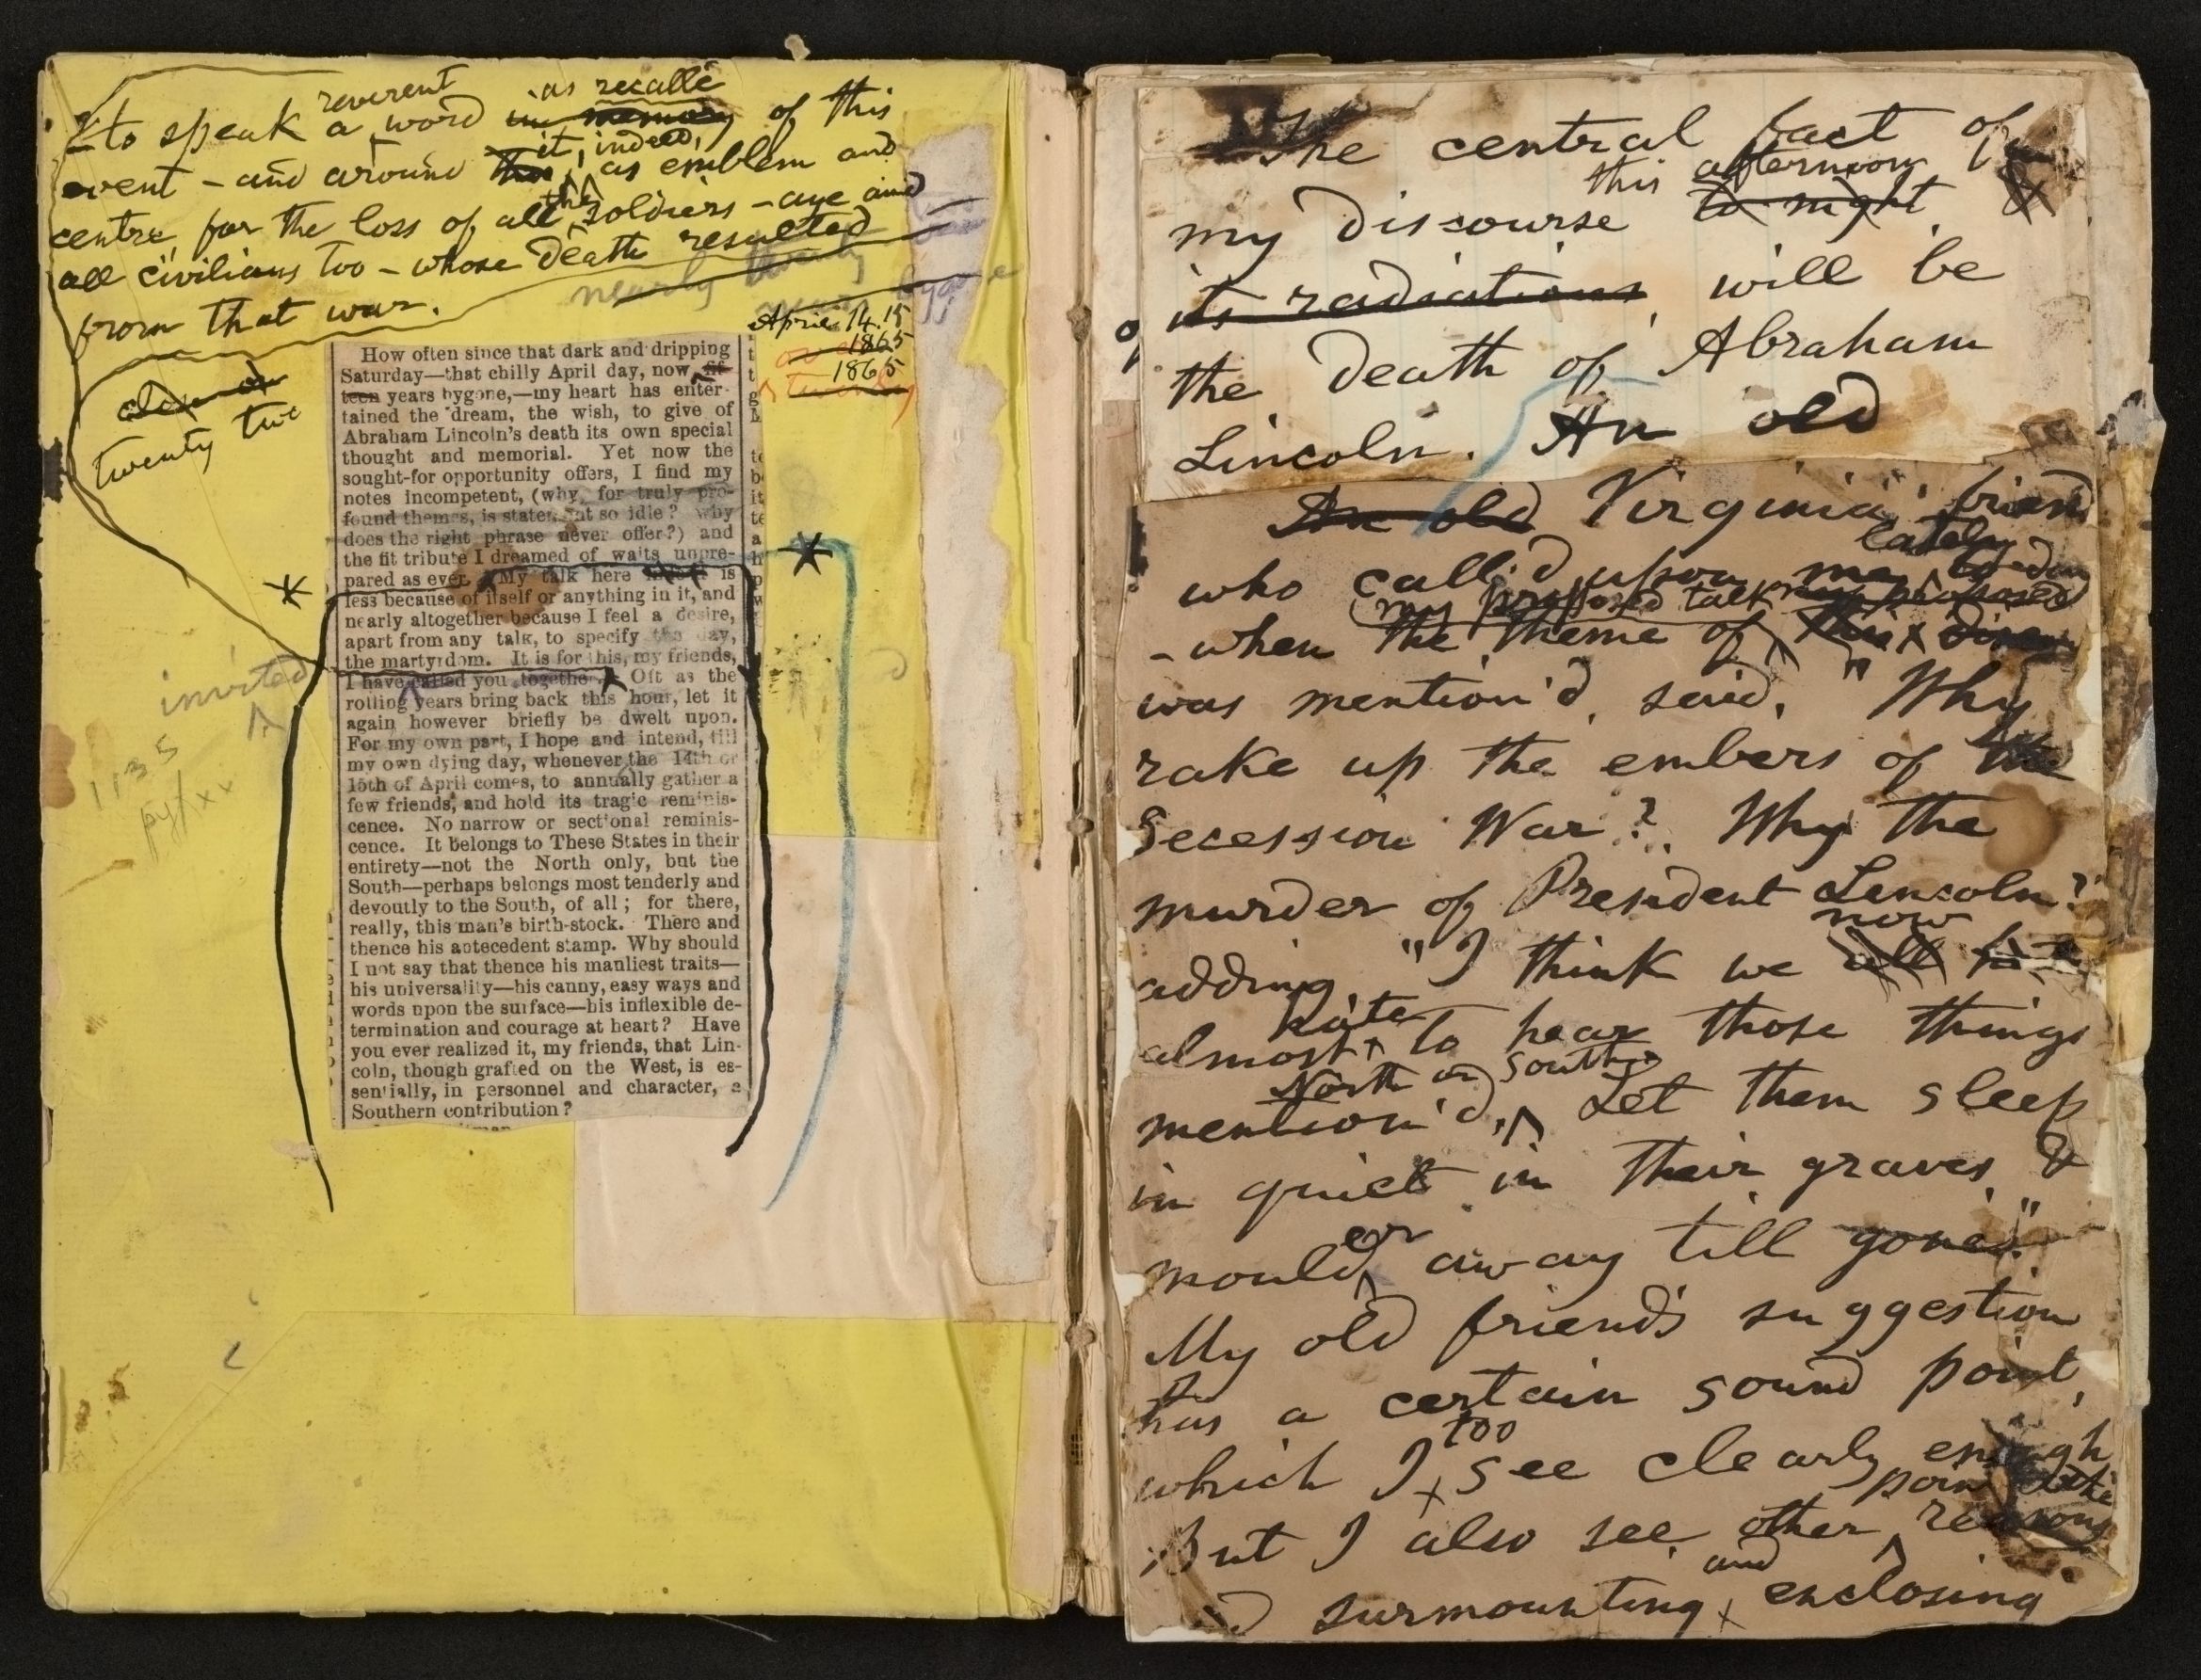 reverent as recalls
to speak a word in memory of this
it, indeed,
event – and around this, as emblem and
the
centre, for the loss of all soldiers – aye and
all civilians too – whose death resulted
from that war.
nearly twenty
years bygone
April 14.15
1865
1865
twenty
close on
twenty two
How often since that dark and dripping
Saturday—that chilly April day, now fif-
teen years bygone,—my heart has enter-
tained the dream, the wish, to give of
Abraham Lincoln's death its own special
thought and memorial. Yet now the
sought-for opportunity offers, I find my
notes incompetent, (why, for truly pro-
found themes, is statement so idle? why
does the right phrase never offer?) and
the fit tribute I dreamed of waits unpre-
pared as ever. My talk here is
less because of itself or anything in it, and
nearly altogether because I feel a desire,
apart from any talk, to specify the day,
the martyrdom. It is for this, my friends,
I have called you together. Oft as the
rolling years bring back this hour, let it
again however briefly be dwelt upon.
For my own part, I hope and intend, till
my own dying day, whenever the 14th or
15th of April comes, to annually gather a
few friends, and hold its tragic reminis-
cence. No narrow or sectional reminis-
cence. It belongs to These States in their
entirety—not the North only, but the
South—perhaps belongs most tenderly and
devoutly to the South, of all; for there,
really, this man's birth-stock. There and
thence his antecedent stamp. Why should
I not say that thence his manliest traits—
his universality—his canny, easy ways and
words upon the surface—his inflexible de-
termination and courage at heart? Have
you ever realized it, my friends, that Lin-
coln, though grafted on the West, is es-
sentially, in personnel and character, a
Southern contribution?
invited
1135
The central fact of
this afternoon
my discourse to-night &
its radiations, will be
the death of Abraham
Lincoln. An old
An old Virginia friend
lately
who call'd upon me
my proposed talk my proposed
– when the theme of this
was mention'd, said, "Why
rake up the embers of the
Secession War? Why the
murder of President Lincoln?
now
adding, "I think we all
hate
almost to hear those things
North or South
mention'd, Let them sleep
in quiet in their graves, &
or
mould away till gone."
My old friend's suggestion
has a certain sound point,
too
which I see clearly enough
But I also see other reasons
and
surmounting enclosing